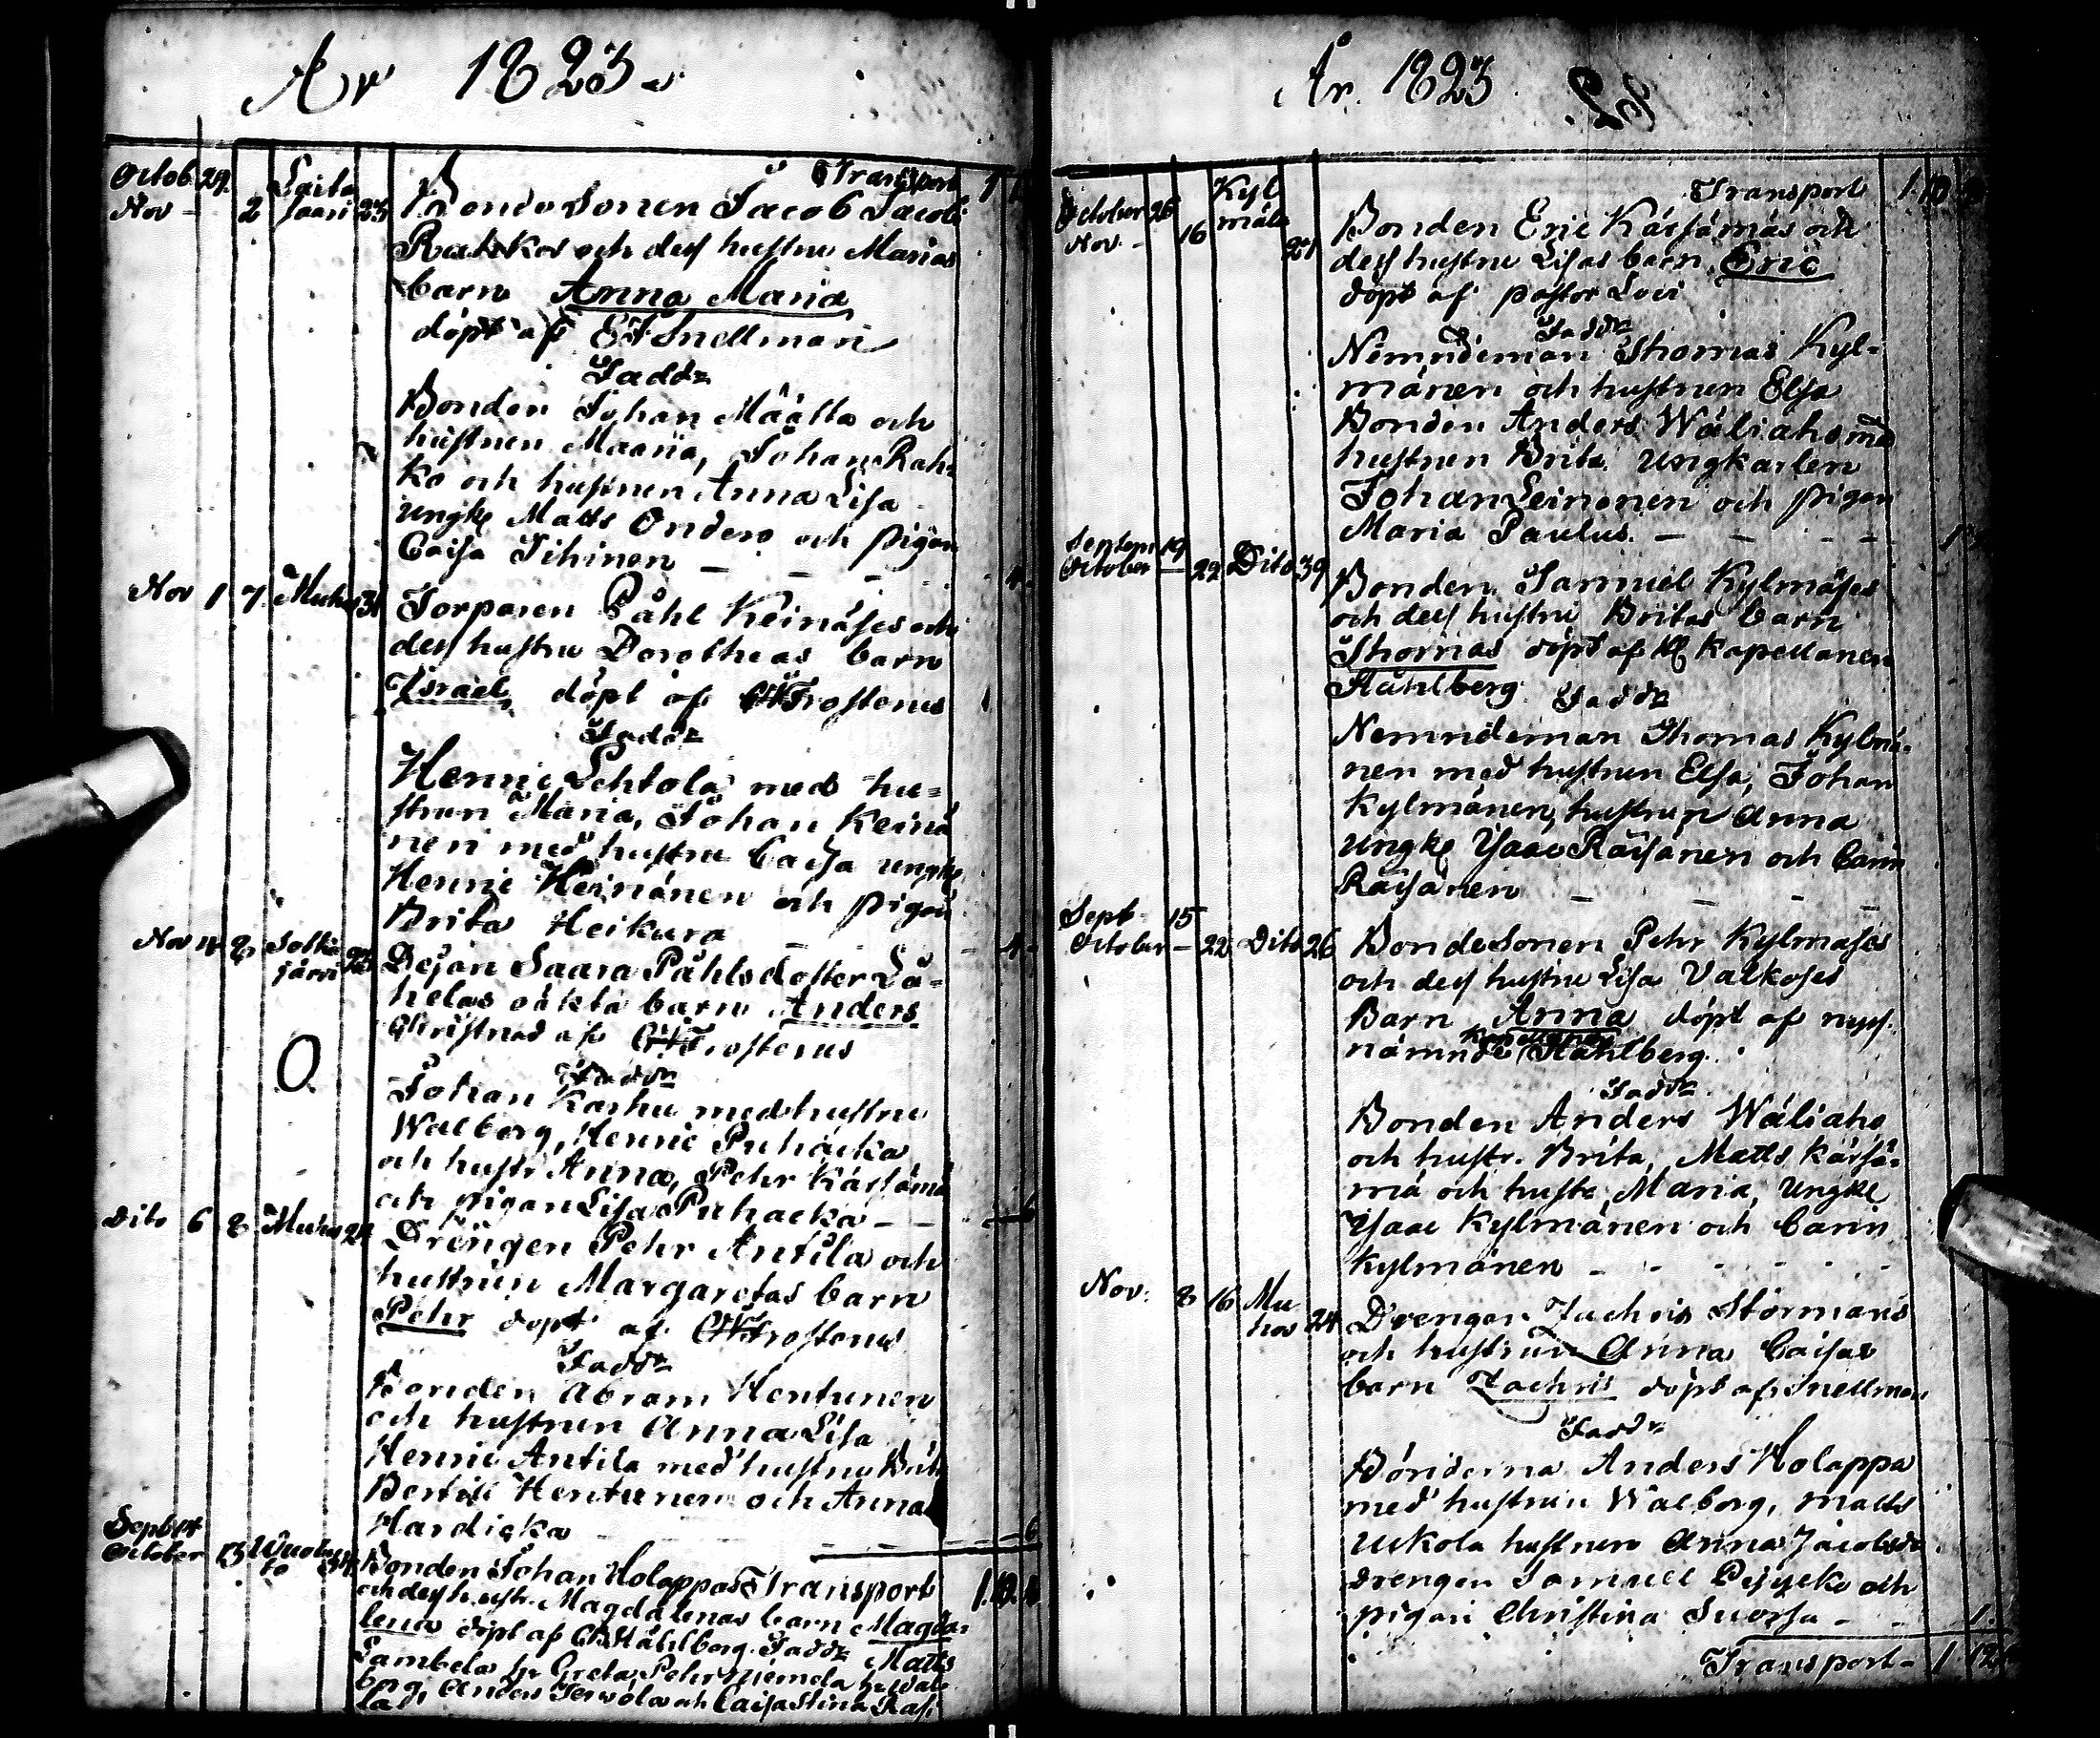 År 1823
Transport 1
Octob 29. Nov - 2 Laitasaari 23 Bondesonen Jacob Jacobs
Rahkos och dess hustru Marias
barn Anna Maria
döpt af E F Snellman
Fadd:r
Bonden Johan Määtta och
hustrun Maria, Johan Rah-
ko och hustrun Anna Lisa
ungk. Matts Onders och pigan
Caisa Tihinen - - - 4.
Nov 1 7. Muhos 31 Torparen Påhl Keinäses och
dess hustru Dorotheas barn
Israel, döpt af Frosterus
Fadd:r
Henric Lehtola med hu=
strun Maria, Johan Keinä
nen med hustru Caisa ungk.
Henric Heinänen och pigan
Brita Heikura - 4.
Nov 4 8 Sotkajärvi Dejan Saara Påhlsdotter Lä=
helas oäkta barn Anders
Christnad af Frosterus
O
Fadd:r
Johan Karhu med hustru
Walborg, Henric Puhacka
och hustr Anna, Pehr Kärsämä
och pigan Lisa Puhacka - - 6
Dito 6 8 Muhos 24 Drängen Pehr Antila och
hustrun Margaretas barn
Pehr döpt af Frosterus
Fadd:r
Bonden Abram Hentunen
och hustrun Anna Lisa
Henric Antila med hustru Brita
Bertill Hentunen och Anna
Hardicka - - - 6
Sept October 13 34 Bonden Johan Holappas Transport 1.
och dess hustr. Magdalenas barn Magda=
lena döpt af Ståhlberg. Fadd:r Matts
Lambela h. Greta, Pehr Niemela h. Wal-
borg, Anders Terwola och Caisa Stina Rasi
la
År. 1823
Transport 1.
October 26 Nov. - 16 Kylmälä 21 Bonden Eric Kärsämäs och
dess hustru Lisas barn Eric
döpt af pastor
Fadd:r
Nämndeman Thomas Kyl=
mänen och hustrun Elsa
Bonden Anders Wäliaho med
hustrun Brita. ungkarlen
Johan Leinonen och pigan
Maria Paulus. - - - -
Septem 19 October - 22 Dito 39 Bonden Samuel Kylmäses
och dess hustru Britas barn
Thomas döpt af Kapellanen
Ståhlberg. Fadd:r
Nemndeman Thomas Kylmä=
nen med hustrun Elsa, Johan
Kylmänen, hustrun Anna
ungk Isaac Räisänen och Carin
Räisänen - - - -
Sept 15 October - 22 Dito 26 BondeSonen Pehr Kylmäses
och dess hustru Lisa Valkoses
Barn Anna döpt af nyss.
nämnde Kapellanen Ståhlberg.
Fadd:r
Bonden Anders Wäliaho
och hustr. Brita, Matts Kärsä=
mä och hustr. Maria, ungk.
Isaac Kylmänen och Carin
Kylmänen - - - - - -
Nov: 8 16 Muhos 24 Drengen Zachris Störmans
och hustrun Anna Caisas
barn Zachris döpt af Snellman
Fadd:r
Bönderna Anders Holappa
med hustrun Walborg, Matts
Ukkola hustrun Anna Jacobsdr.
drengen Samuel och
pigan Christina Suorsa - - 1.
Transport - 1